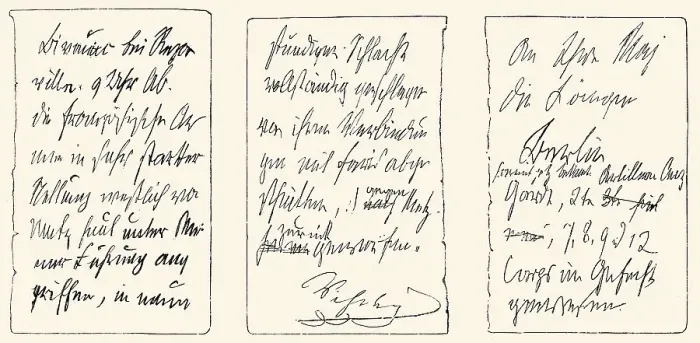 Bivouac bei Rezon
ville. 9 Uhr Ab.
die französische Ar
mee in sehr starker
Stellung westlich von
Metz heut unter Mei
ner Führung ange
griffen, in neun
stündiger Schlacht
vollständig geschlagen
von ihren Verbindun
gen mit Paris abge
schnitten, u gegen Metz.
zurück
geworfen.
Wilhelm
An Ihre Maj
die Königin
Berlin
soweit jetzt bekannt
Garde, 2te
7, 8, 9 & 12
Corps im Gefecht
gewesen.